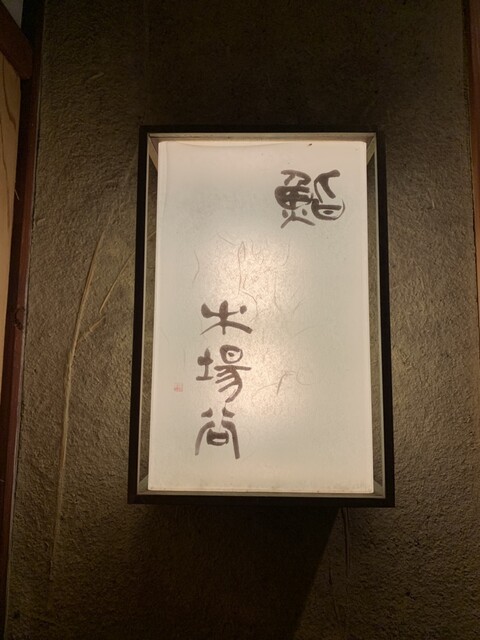 鮨
木場谷